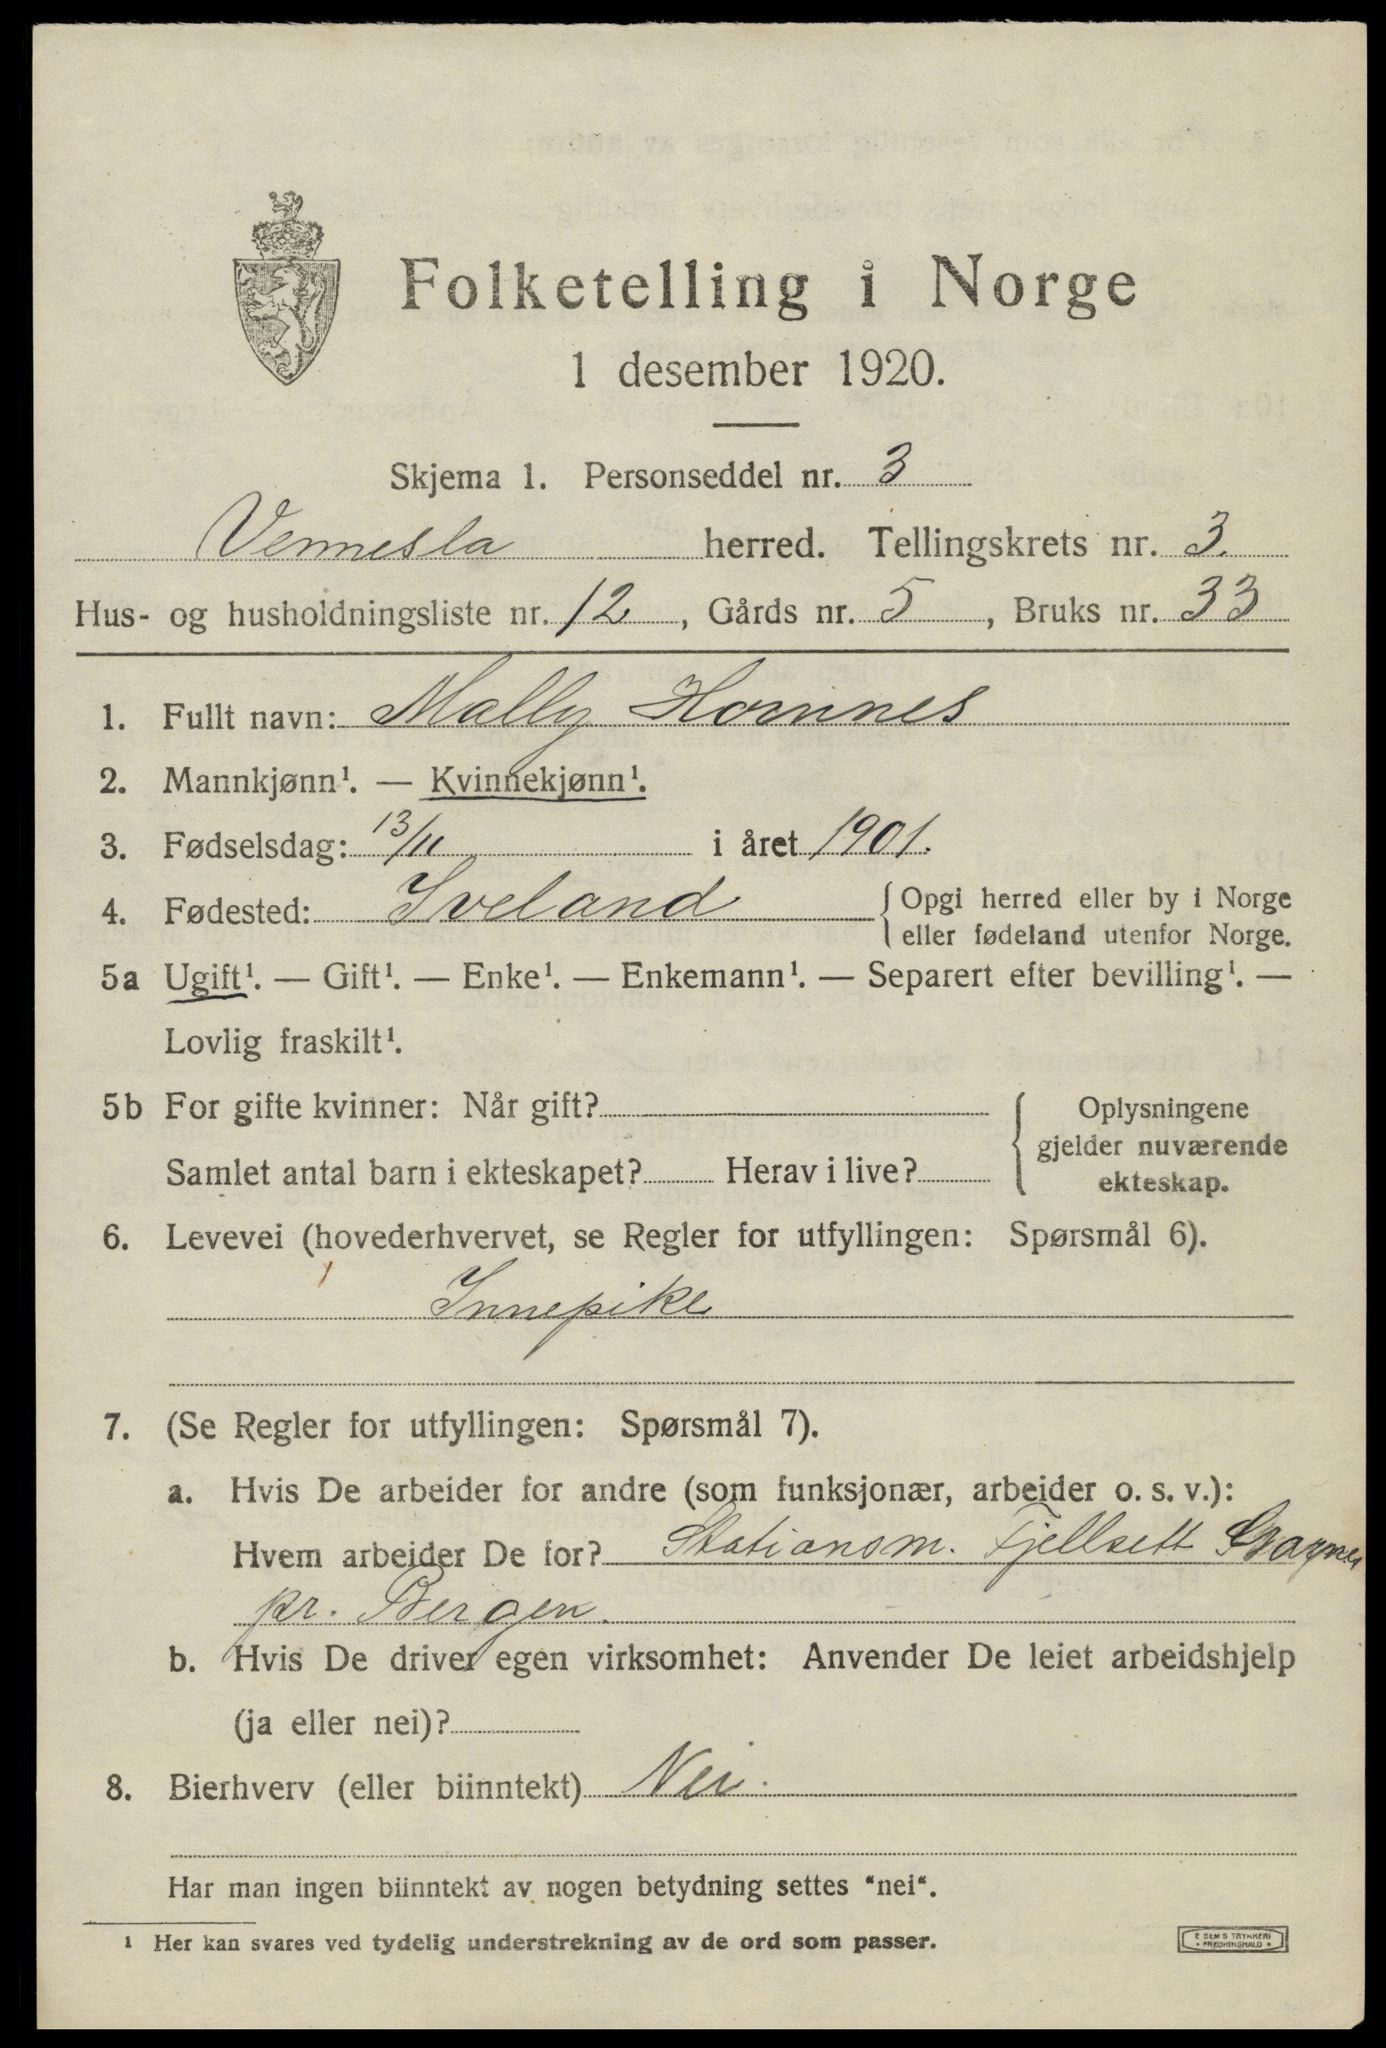 Folketelling i Norge
1 desember 1920.
Skjema 1. Personseddel nr. 3
Vennesla herred. Tellingskrets nr. 3.
Hus- og husholdningsliste nr. 12, Gårds nr. 5, Bruks nr. 33
1. Fullt navn: Mally Hornnes
2. Mannkjønn¹. — Kvinnekjønn¹.
3. Fødselsdag: 13/11 i året 1901.
4. Fødested: Iveland { Opgi herred eller by i Norge
eller fødeland utenfor Norge.
5a Ugift¹. — Gift¹. — Enke¹. — Enkemann¹. — Separert efter bevilling¹. —
Lovlig fraskilt¹.
5b For gifte kvinner: Når gift? { Oplysningene
gjelder nuværende
Samlet antal barn i ekteskapet? Herav i live? ekteskap.
6. Levevei (hovederhvervet, se Regler for utfyllingen: Spørsmål 6).
Innepike
7. (Se Regler for utfyllingen: Spørsmål 7).
a. Hvis De arbeider for andre (som funksjonær, arbeider o. s. v.):
Hvem arbeider De for? Stationsm. Fjellsett
pr. Bergen.
b. Hvis De driver egen virksomhet: Anvender De leiet arbeidshjelp
(ja eller nei)?
8. Bierhverv (eller biinntekt) Nei.
Har man ingen biinntekt av nogen betydning settes "nei".
¹ Her kan svares ved tydelig understrekning av de ord som passer.
E SEM'S TRYKKERI
FREDRIKSHALD